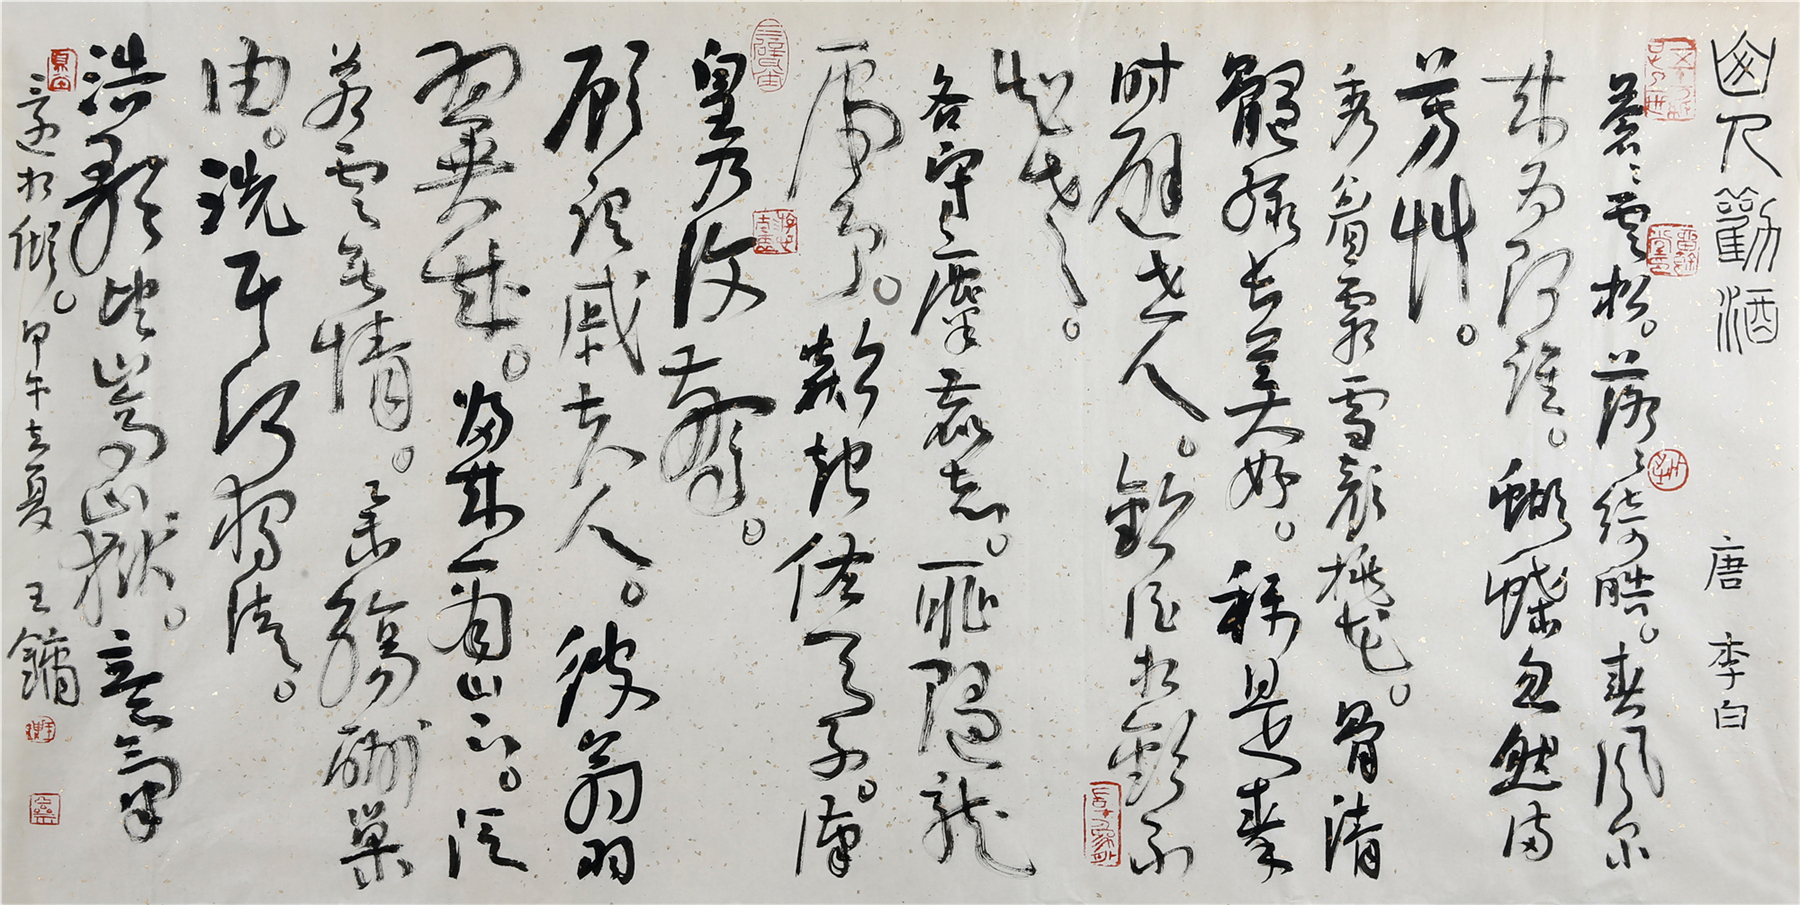 山人勸酒 唐 李白
蒼々雲松。落々綺皓。春風尔
來为阿誰。蝴蝶忽然满
芳艸。
秀眉霜雪顏桃花。骨清
髓緑長美好。稱是秦
时避世人。勸酒相歡不
知老。
各守麋鹿志。耻隨龍
虎爭。欻起佐太子。漢
皇乃復驚。
顧謂戚夫人。彼翁羽
翼成。歸來商山下。泛
若雲無情。舉觴酬巢
由。洗耳何獨清。
浩歌望嵩嶽。意氣
還相傾。甲午立夏 王鏞